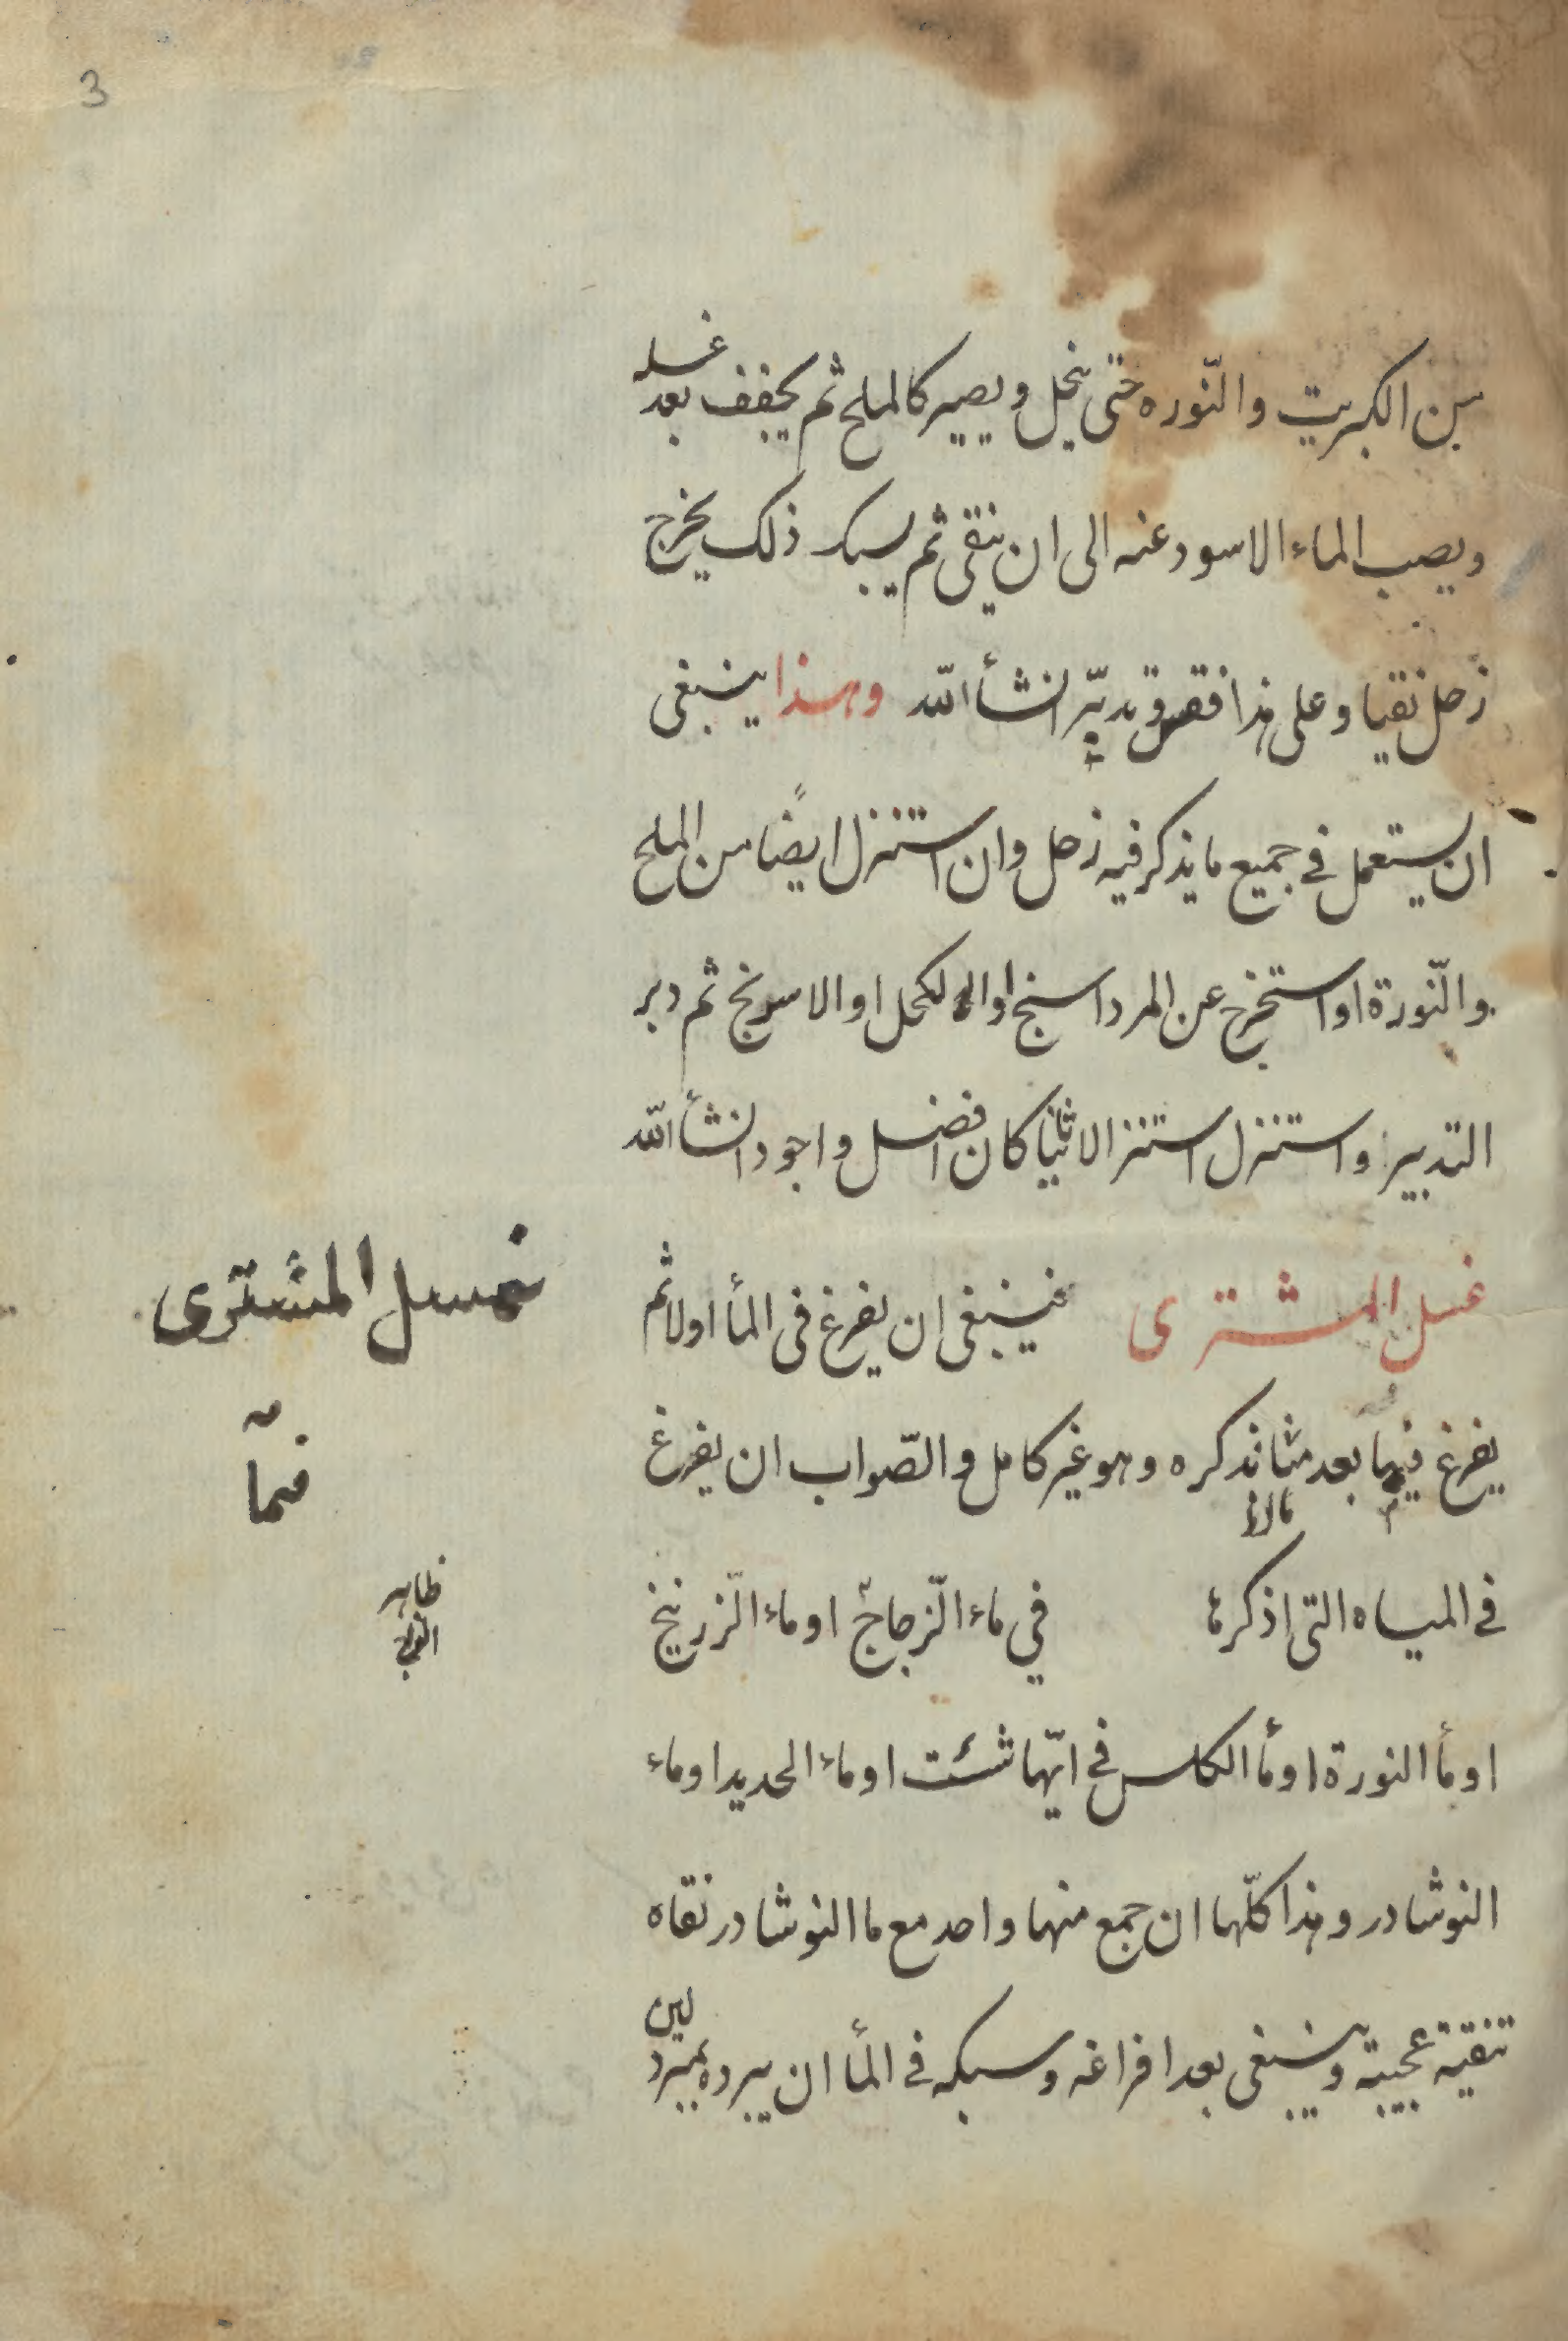 3
من الكبريت والنّوره حتى ينحل ويصير كالملح ثم يجفف بعد غسله
ويصب الماء الاسود عنه الى ان ينقى ثم يسبك ذلك يخرج
زحل نقيا وعلى هذا فقس وتدبّر انشأ الله وهذا ينبغى
ان يستعمل فى جميع ما يذكر فيه زحل وان استنزل ايضًا من الملح
والنّورة او استخرج عن المرداسنج او الكحل او الاسرنج ثم دبر
التدبير واستنزل استنزالا ثانيا كان افضل واجود انشأ الله
غسل المشترى فينبغى ان يفرغ فى المأ اولا ثم
غسل المشترى
يفرغ فيها بعد نذكره وهو غير كامل والصّواب ان يفرغ
فى المياه التى اذكرها فى ماء الزّجاج او ماء الزّرنيخ
ظاهر
او مأ النورة او مأ الكلس فى ايّها شئت او ماء الحديد او ماء
النوشادر وهذا كلّها ان جمع منها واحد مع ما النوشادر نقاه
تنقية عجيبة وينبغى بعد افراغه وسبكه فى المأ ان يبرده بمبرد لين